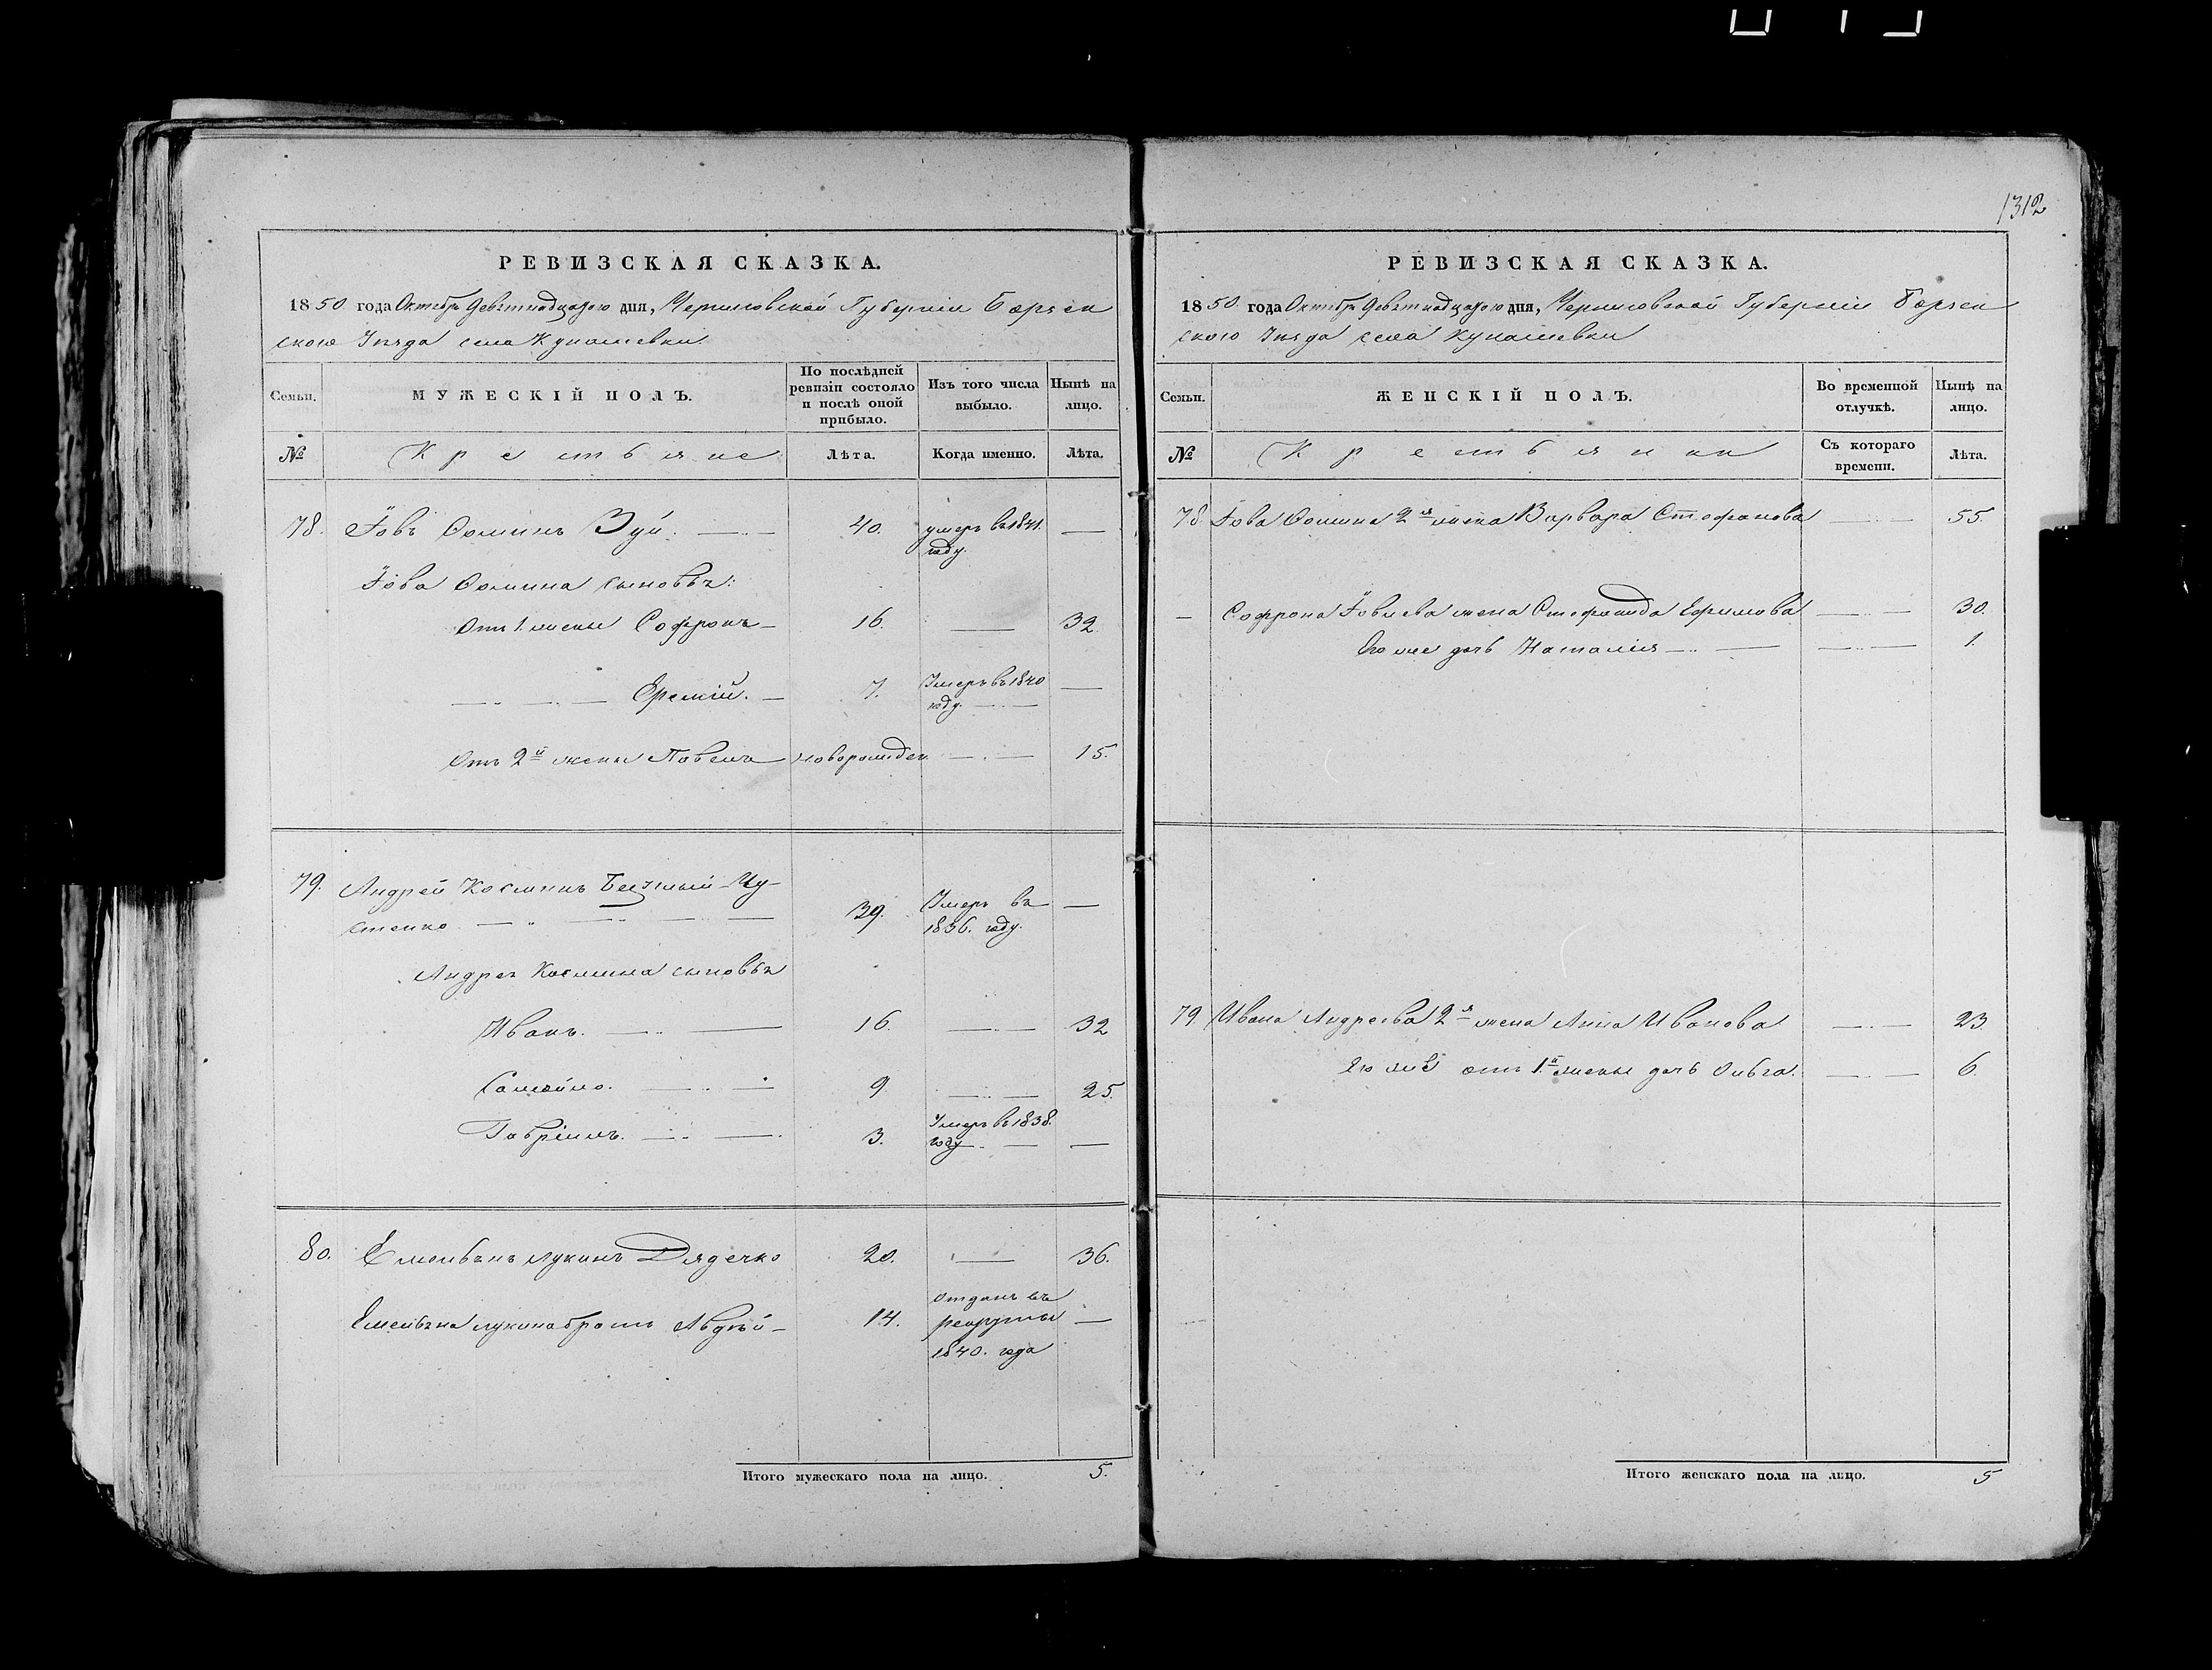 1312
РЕВИЗСКАЯ СКАЗКА.
1850 года Октября девятнадцатого дня, Черниговской Губерніи Борзен
ского Уезда села Кунашевки
Семьи. МУЖЕСКІЙ ПОЛЪ. По послѣдней ревизіи состояло и послѣ оной прибыло. Изъ того числа выбыло. Нынѣ на лицо.
№ Крестьяне Лѣта. Когда именно. Лѣта.
78. Іовъ Фоминъ Зуй. 40. умеръ въ 1841. —
году.
Іова Фомина сыновья:
Отъ 1. жены Софронъ — 16. — 32
Еремій. — 7. Умеръ въ 1840 —
году.
Отъ 2й жены Павелъ новорожден — 15.
79. Андрей Косминъ
стенко 39. Умеръ въ —
1836. году.
Андрея Космина сыновья
Иванъ. 16. — 32
Самойло. 9. — 25.
Гавріилъ. 3. Умеръ въ 1838. —
году
80. Емельянъ Лукинъ Дядечко 20. — 36.
Емельяна Лукина братъ Авдѣй — 14. отданъ въ —
рекруты
1840. года
Итого мужескаго пола на лицо. 5.
РЕВИЗСКАЯ СКАЗКА.
1850 года Октября девятнадцатого дня, Черниговской Губерніи Борзен
ского Уезда села Кунашевки
Семьи. ЖЕНСКІЙ ПОЛЪ. Во временной отлучкѣ. Нынѣ на лицо.
№ Крестьянки Съ котораго времени. Лѣта.
78 Іова Фомина 2я жена Варвара Стефанова — 55.
— Софрона Іовлева жена Стефанида Ефимова — 30.
Его же дочь Наталія — 1.
79 Ивана Андреева 2я жена Анна Иванова — 23.
Его же отъ 1й жены дочь Ольга. — 6.
Итого женскаго пола на лицо. 5